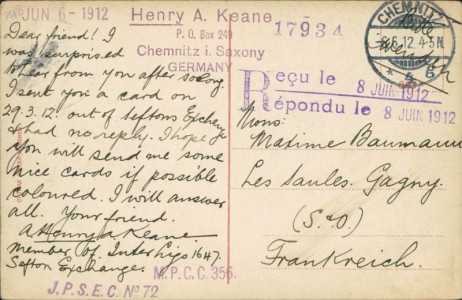 JUN 6-1912
Henry A. Keane
P. O. Box 249
Chemnitz i. Saxony
GERMANY
17934
CHEMNITZ
6.6.12. 4-5N.
* 5 g
bitte
wenden
Reçu le 8 JUIN 1912
Répondu le 8 JUIN 1912
Dear friend! I
was surprised
to hear from you after so long.
I sent you a card on
29.3.12. out of Seftons Exchange
& had no reply. I hope
you will send me some
nice cards if possible
coloured. I will answer
all. Your friend.
Henry A Keane.
member of Inter Ligs 1647.
Sefton Exchange.
M.P.C.C. 356.
J.P.S.E.C. No 72
Mons:
Maxime Baumann
Les Saules. Gagny.
(S.&O.)
Frankreich.